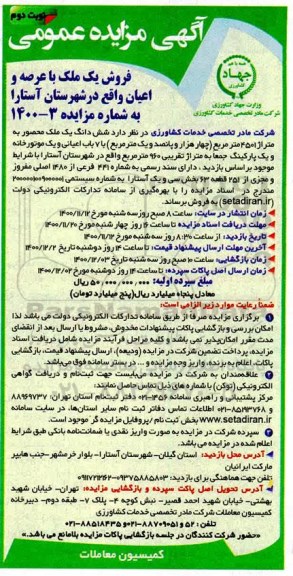 نوبت دوم
آگهی مزایده عمومی
جهاد
وزارت جهاد کشاورزی
شرکت مادر تخصصی خدمات کشاورزی
فروش یک ملک با عرصه و
اعیان واقع در شهرستان آستارا
به شماره مزایده ۳-۱۴۰۰
شرکت مادر تخصصی خدمات کشاورزی در نظر دارد شش دانگ یک ملک محصور به
متراژ ۴۵۰۱ مترمربع (چهار هزار و پانصد و یک مترمربع) با ۷ باب اعیانی و یک موتورخانه
و یک پارکینگ جمعا به متراژ تقریبی ۹۶۰ مترمربع واقع در شهرستان آستارا با شرایط
موجود براساس بازدید، دارای سند رسمی به شماره ۴۴۱ فرعی از ۱۴۸۰ اصلی مفروز
و مجزی از ۲۵۱ قطعه ۶۳ بخش سی و یک آستارا به شماره سیستمی
مندرج در اسناد مزایده را با بهره‌گیری از سامانه تدارکات الکترونیکی دولت
(setadiran.ir) به فروش برساند.
زمان انتشار در سایت: ساعت ۸ صبح روز سه شنبه مورخ ۱۴۰۰/۱۱/۱۲
مهلت دریافت اسناد مزایده: تا ساعت ۱۶ روز سه شنبه مورخ
تاریخ بازدید: از ساعت ۸:۳۰ روز سه شنبه مورخ
آخرین مهلت ارسال پیشنهاد قیمت: تا ساعت ۱۴ روز دوشنبه تاریخ ۱۴۰۰/۱۲/۰۲
زمان بازگشایی: ساعت ۱۰ صبح روز سه شنبه تاریخ ۱۴۰۰/۱۲/۰۳
زمان ارسال اصل پاکات سپرده: تا ساعت ۱۴ روز دوشنبه مورخ ۱۴۰۰/۱۲/۰۲
مبلغ سپرده اولیه: ۵۰,۰۰۰,۰۰۰,۰۰۰ ریال
معادل پنجاه میلیارد ریال (پنج میلیارد تومان)
ضمنا رعایت موارد زیر الزامی است:
۱ برگزاری مزایده صرفا از طریق سامانه تدارکات الکترونیکی دولت می باشد لذا
امکان بررسی و بازگشایی پاکات پیشنهادات مخدوش، مشروط یا ارسال بعد از انقضای
مدت مقرر امکان‌پذیر نمی باشد و کلیه مراحل فرآیند مزایده شامل دریافت اسناد
مزایده، پرداخت تضمین شرکت در مزایده (ودیعه)، ارسال پیشنهاد قیمت، بازگشایی
پاکات، اعلام به برنده، واریز وجه مزایده و ... در بستر سامانه فوق می باشد.
۲ علاقه‌مندان به شرکت در مزایده می‌بایست جهت ثبت‌نام و دریافت گواهی
الکترونیکی (توکن) با شماره های ذیل تماس حاصل نمایند:
مرکز پشتیبانی و راهبری سامانه ۱۴۵۶-۰۲۱ دفتر ثبت‌نام استان تهران: ۸۸۹۶۹۷۳۷
و ۸۵۱۹۳۷۶۸-۰۲۱ اطلاعات تماس دفاتر ثبت نام سایر استان‌ها، در سایت سامانه
www.setadiran.ir بخش ثبت نام / پروفایل مزایده گر موجود است.
سپرده شرکت در مزایده به صورت واریز نقدی یا ضمانت‌نامه بانکی طبق شرایط
اعلام شده در مزایده می باشد.
آدرس محل بازدید: استان گیلان- شهرستان آستارا- بلوار خرمشهر- جنب هایپر
مارکت ایرانیان
تلفن جهت هماهنگی برای بازدید:
آدرس تحویل اصل پاکت سپرده و بازگشایی مزایده: تهران- خیابان شهید
بهشتی- خیابان شهید احمد قصیر- نبش کوچه ۴- پلاک ۷- طبقه دوم- دبیرخانه
کمیسیون معاملات شرکت مادر تخصصی خدمات کشاورزی
تلفن: ۵۲ و ۸۸۷۰۹۰۵۱-۰۲۱ ۸۸۵۱۸۴۳۵-۰۲۱
«حضور شرکت کنندگان در جلسه بازگشایی پاکات مزایده بلامانع می باشد.»
کمیسیون معاملات